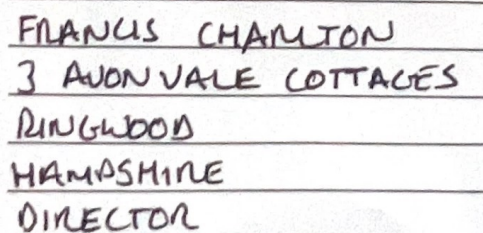 FRANCIS CHARLTON
3 AVONVALE COTTAGES
RINGWOOD
HAMPSHIRE
DIRECTOR